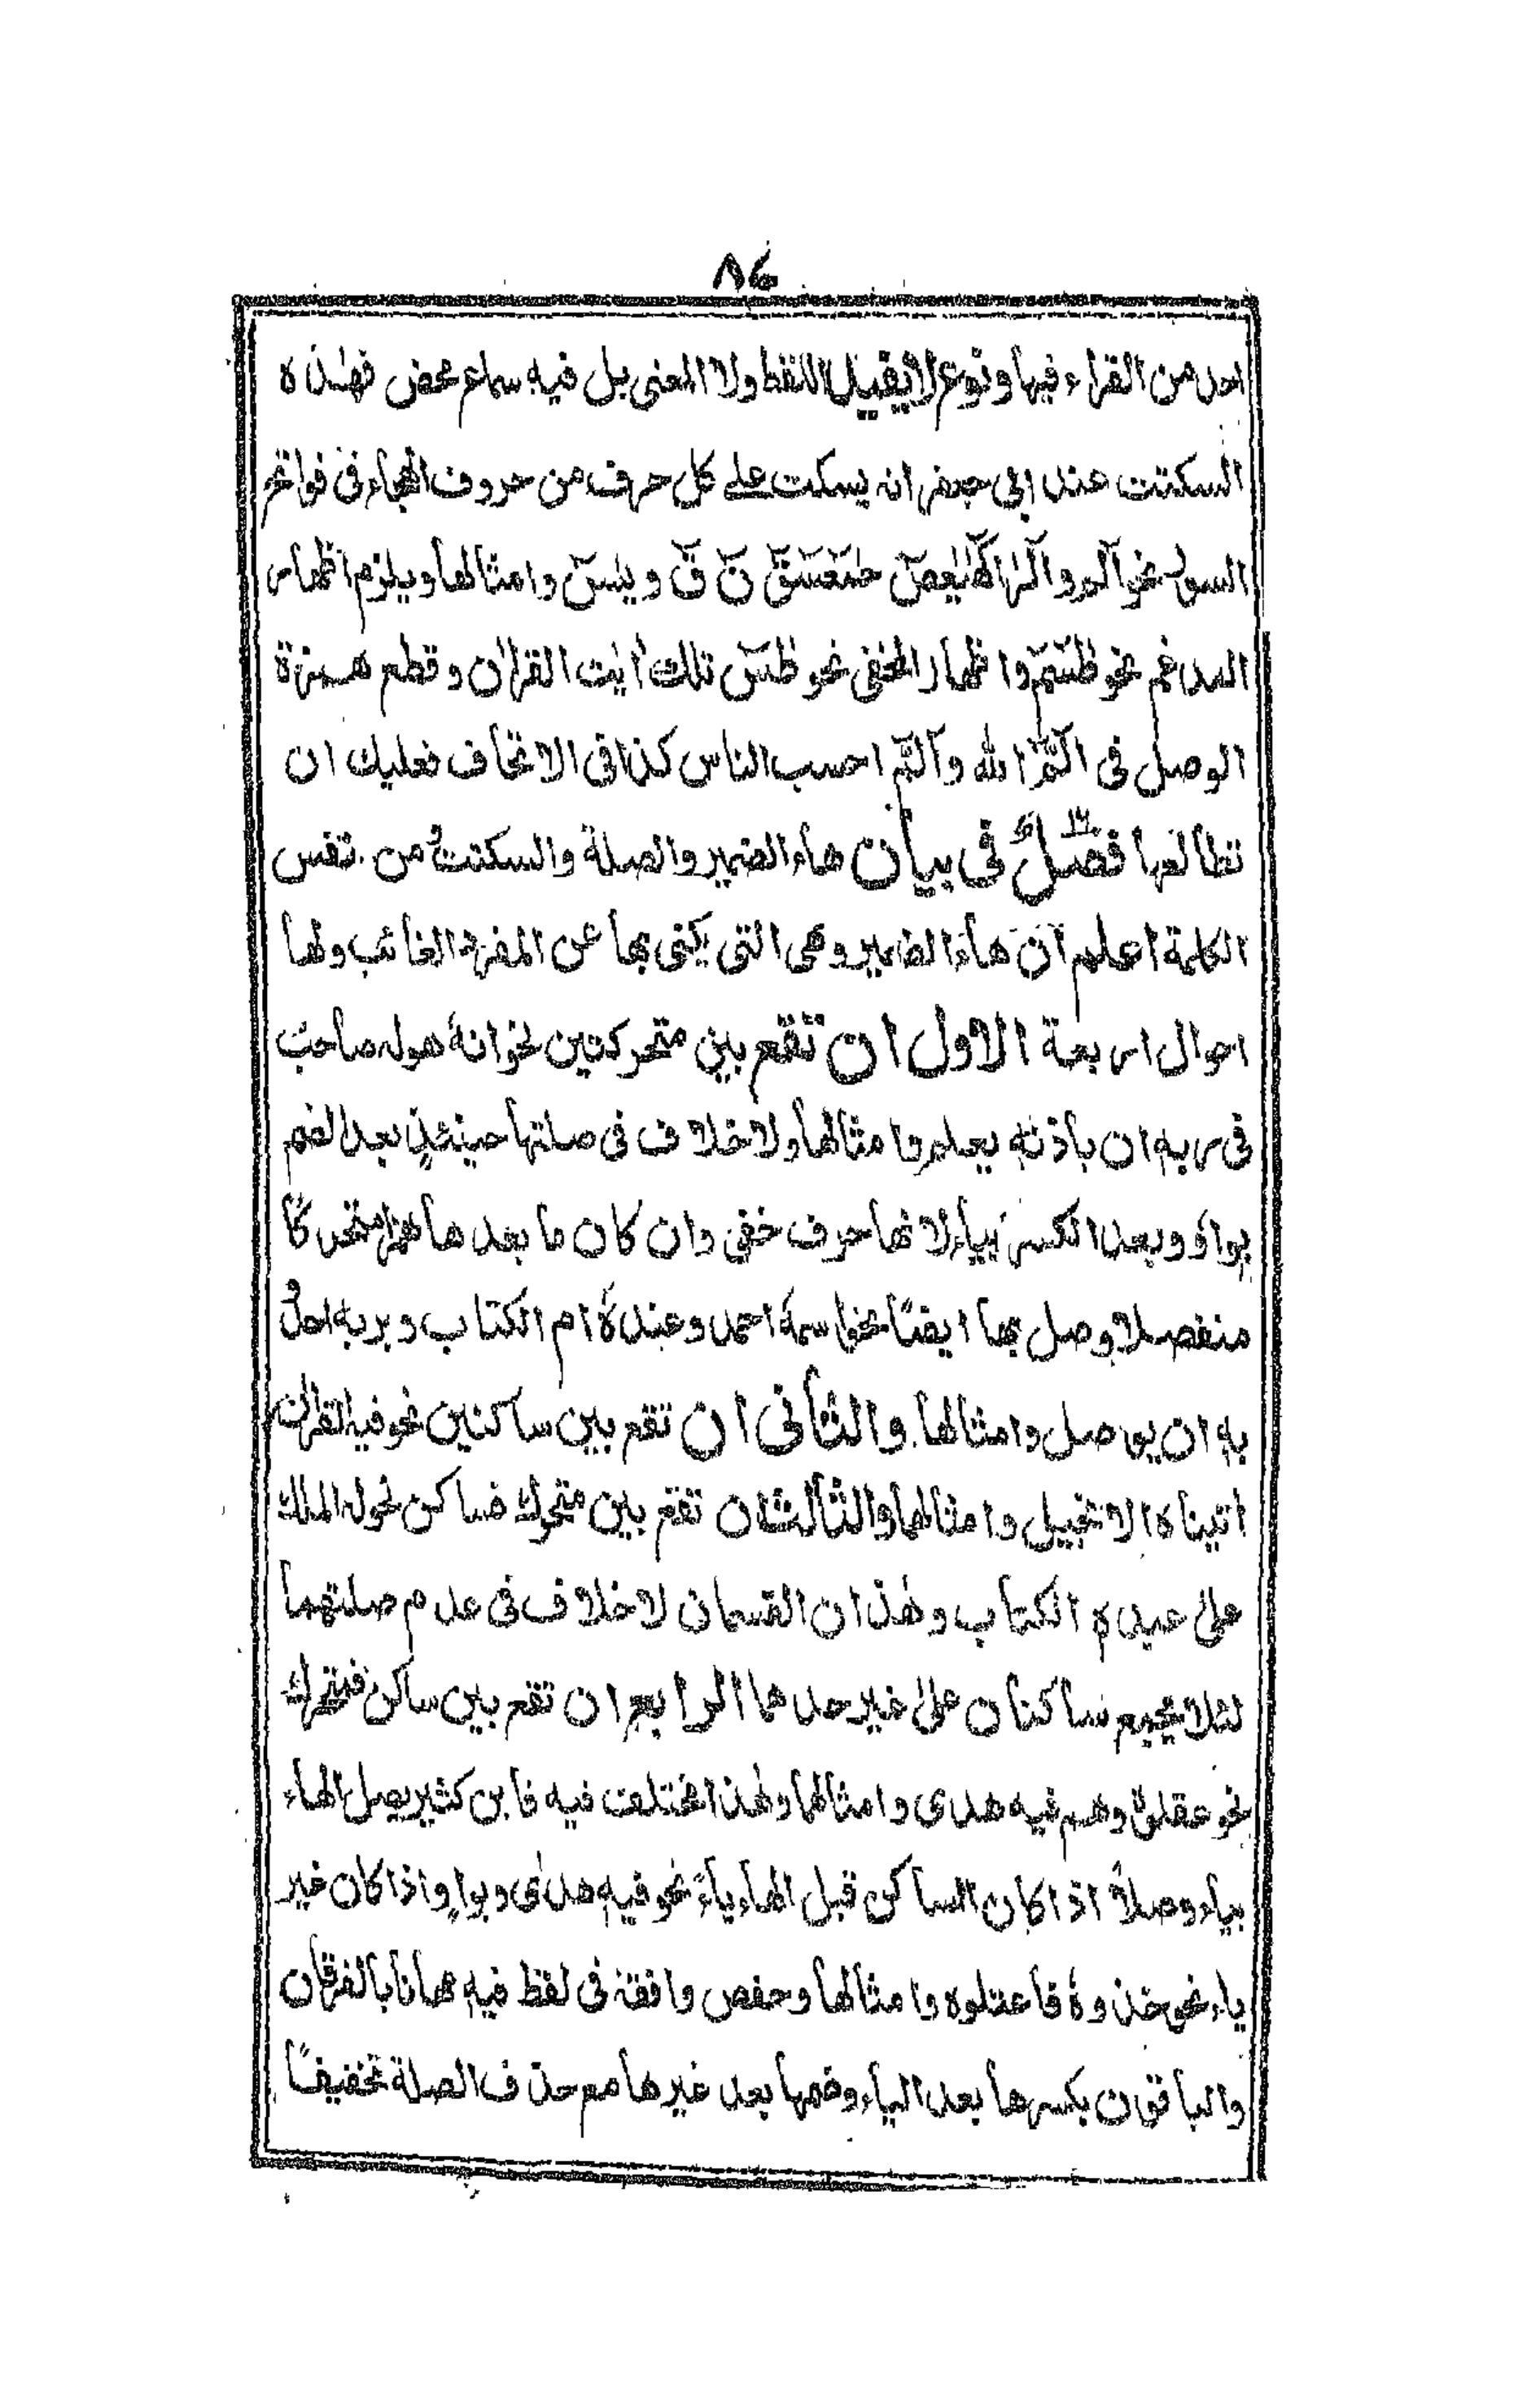 ٨٤
احد من القراء فيها ونوع لا يقبل اللفظ ولا المعنى بل فيه سماع محض فهٰذه
السكتت عند ابى جعفر انه يسكت على كل حرف من حروف الهجاء فى فواتح
السور نحو آلر والٓمٓرٰ كٓهٰيٰعٓصٓ حٰمٓ عٓسٓقٓ نٓ قٓ ويٰسٓ وامثالها ويلزم اظهار
المدغم نحو طٰسٓمٓ واظهار المخفى نحو طٰسٓ تلك اٰيٰت القراٰن وقطع همزة
الوصل فى الٓمّٓ الله والٓمّٓ احسب الناس كذا فى الاتحاف فعليك ان
تطالعها فصلٌ فى بيان هاء الضمير والصلة والسكتت من نفس
الكلمة اعلم ان هاء الضمير وهى التى يكنى بها عن المفرد الغائب ولها
احوال اربعة الاول ان تقع بين متحركتين نحو انهٗ هو له صاحبه
فى ربهٖ ان باذنهٖ يعلم وامثالها ولا خلاف فى صلتها حينئذٍ بعد الضم
بواوٍ وبعد الكسر بياءٍ لانها حرف خفى وان كان ما بعدها همزا متحركًا
منفصلا وصل بها ايضًا نحو اسمهٗ احمد وعندهٗ ام الكتاب وبربهٖ احدٌ
بهٖ ان يوصل وامثالها والثانى ان تقع بين ساكنين نحو فيه القراٰن
اتيناه الانجيل وامثالها والثالث ان تقع بين متحرك فساكن نحو له الملك
على عبده الكتاب وهٰذان القسمان لا خلاف فى عدم صلتهما
لئلا يجمع ساكنان على غير حدهما الرابع ان تقع بين ساكن فمتحرك
نحو عقلوه وهم فيه هدى وامثالها وهٰذا مختلف فيه فابن كثير يصل الهاء
بياء وصلاً اذا كان الساكن قبل الهاء ياءً نحو فيهٖ هدًى وبواوٍ واذا كان غير
ياء نحو خذوهٗ فاعتلوه وامثالها وحفص وافقهٗ فى لفظ فيهٖ مهانا بالفرقان
والباقون بكسرها بعد الياء وضمها بعد غيرها مع حذف الصلة تخفيفًا